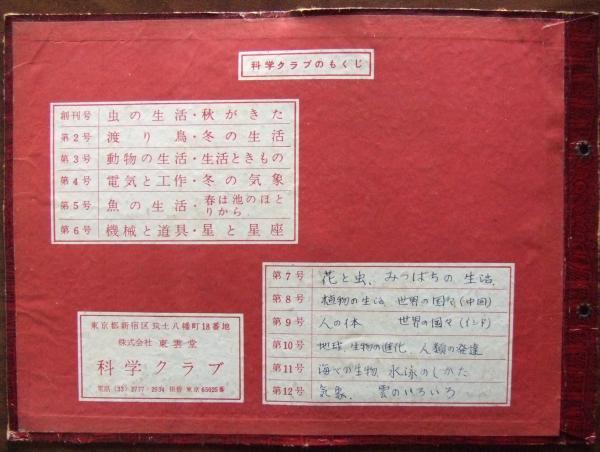 科学クラブのもくじ
創刊号 虫の生活・秋がきた
第2号 渡り鳥・冬の生活
第3号 動物の生活・生活ときもの
第4号 電気と工作・冬の気象
第5号 魚の生活・春は池のほとりから
第6号 機械と道具・星と星座
第7号 花と虫、みつばちの生活、
第8号 植物の生活 世界の国々(中国)
第9号 人の体 世界の国々(インド)
第10号 地球、生物の進化、人類の発達
第11号 海での生物 水泳のしかた
第12号 気象、 雲のいろいろ
東京都新宿区筑土八幡町18番地
株式会社 東雲堂
科学クラブ
電話(33)2777・2934 振替 東京65025番